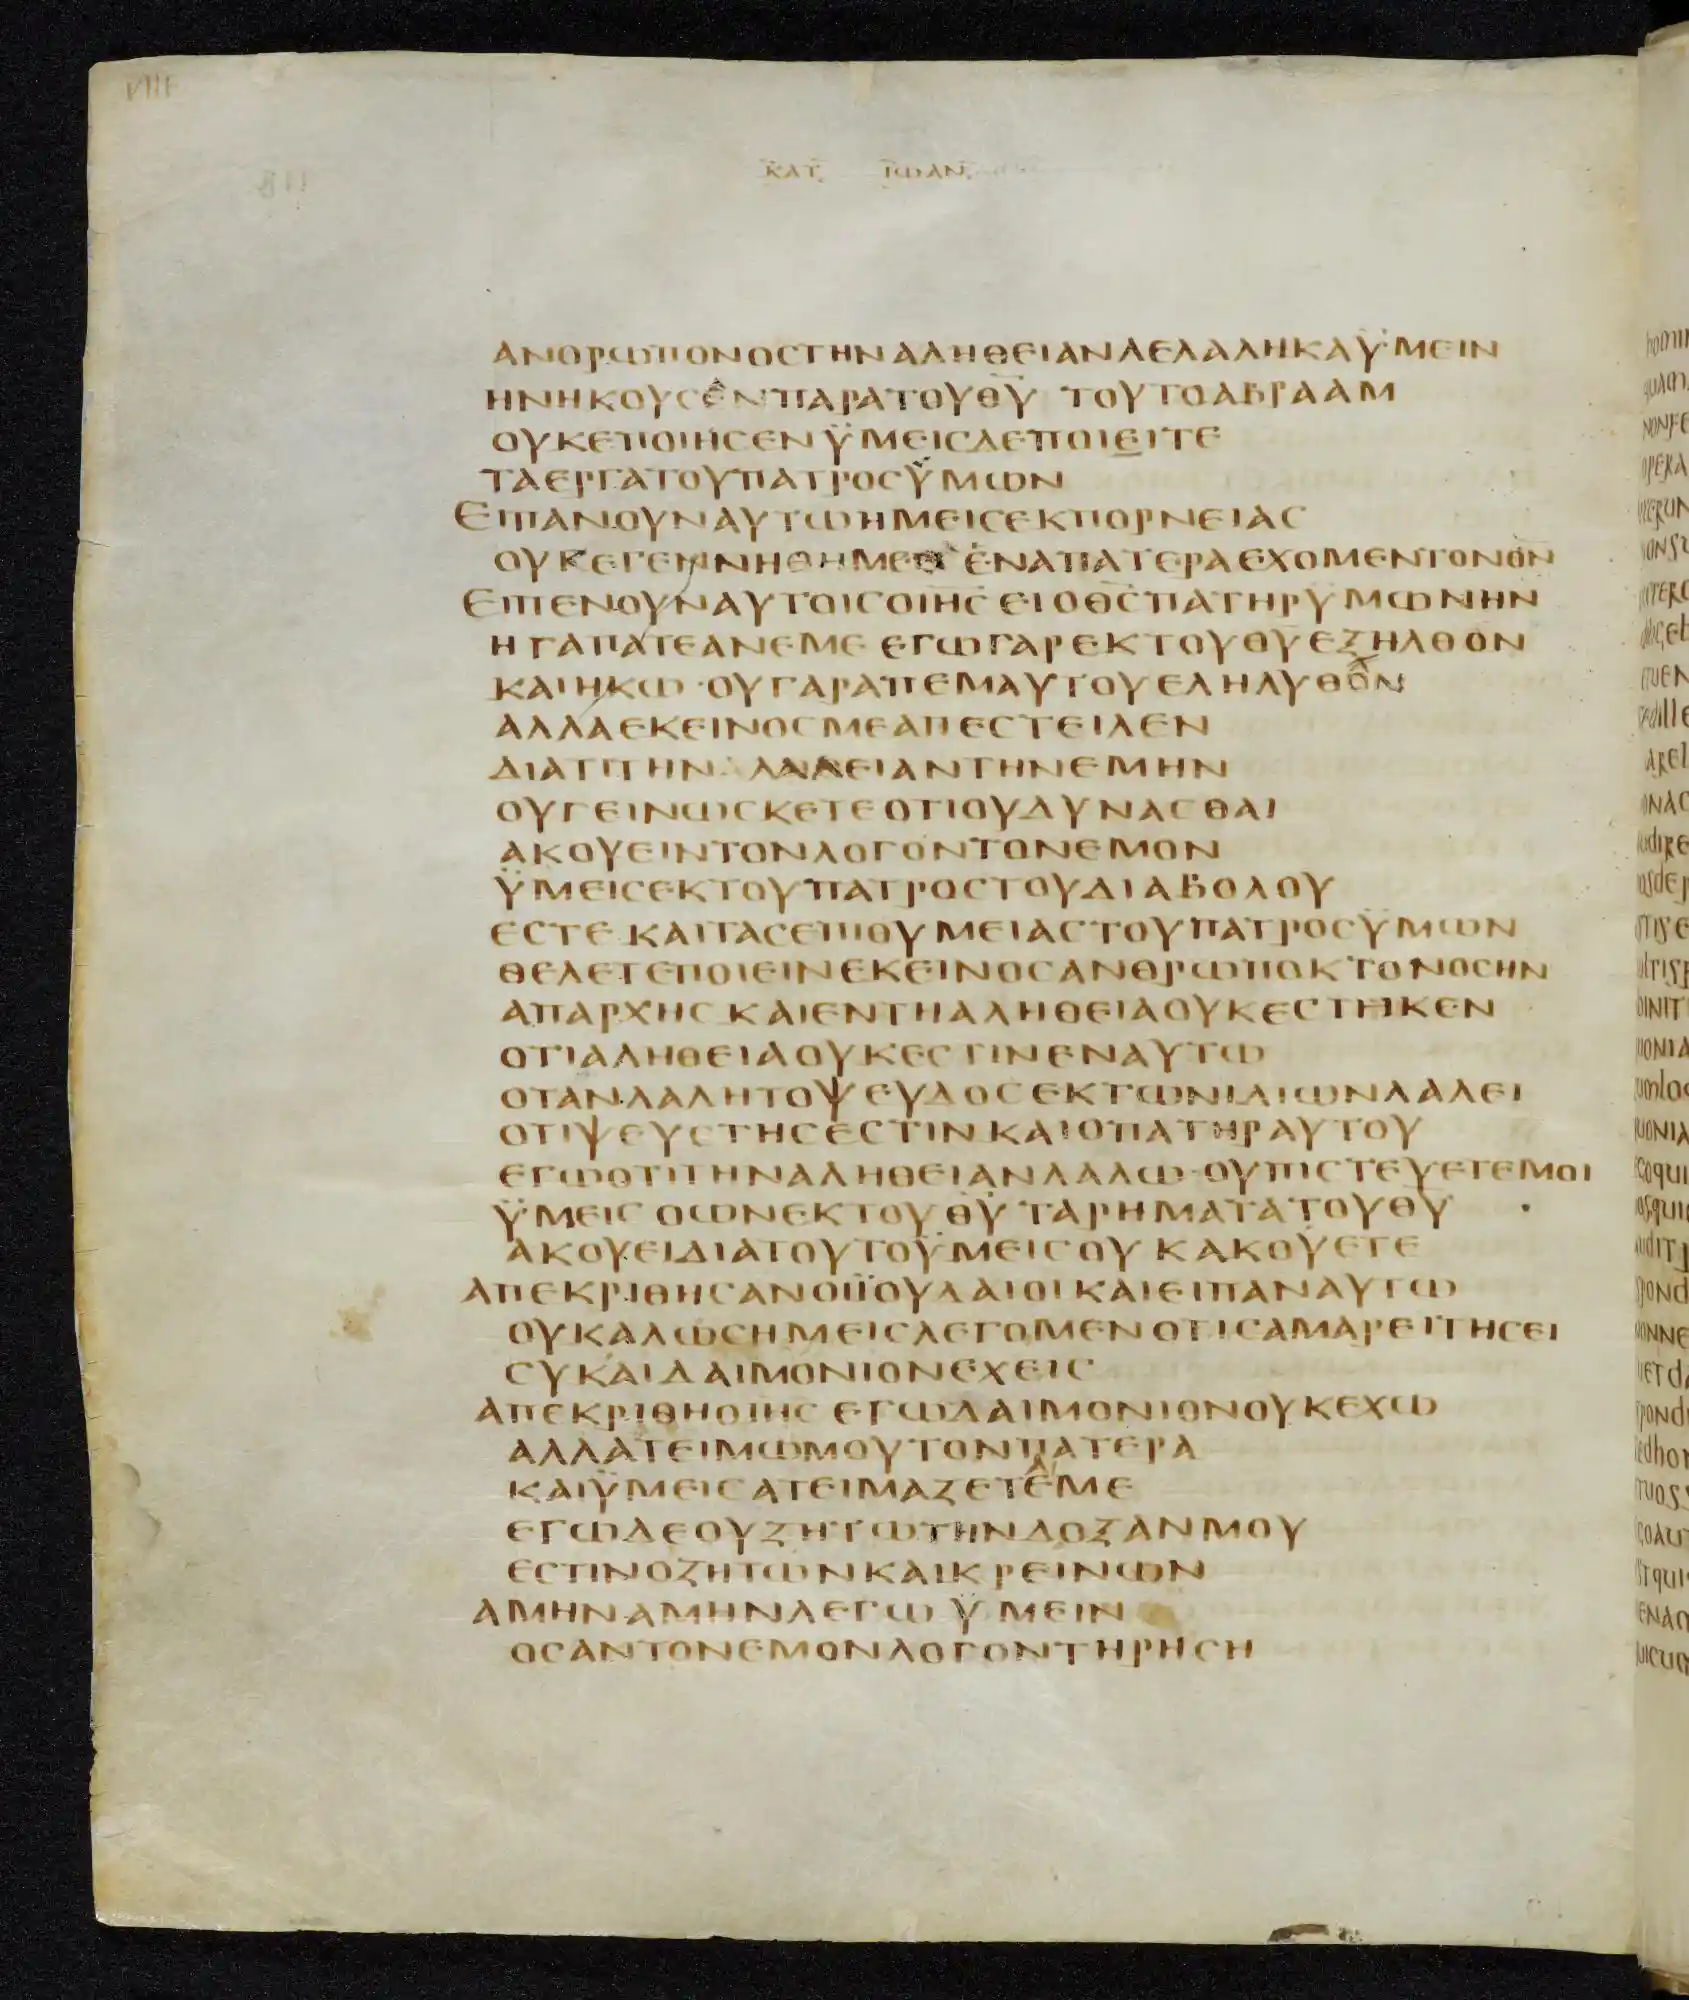 VIII
ΚΑΤ ΙΩΑΝ
ΑΝΘΡΩΠΟΝΟϹΤΗΝΑΛΗΘΕΙΑΝΛΕΛΑΛΗΚΑΫΜΕΙΝ
ΗΝΗΚΟΥϹΕΝΠΑΡΑΤΟΥΘ̅Υ̅ ΤΟΥΤΟΑΒΡΑΑΜ
ΟΥΚΕΠΟΙΗϹΕΝΫΜΕΙϹΔΕΠΟΙΕΙΤΕ
ΤΑΕΡΓΑΤΟΥΠΑΤΡΟϹΫΜΩΝ
ΕΙΠΑΝΟΥΝΑΥΤΩΗΜΕΙϹΕΚΠΟΡΝΕΙΑϹ
ΟΥΚΕΓΕΝΝΗΘΗΜΕΘ ΕΝΑΠΑΤΕΡΑΕΧΟΜΕΝΤΟΝΘ̅Ν̅
ΕΙΠΕΝΟΥΝΑΥΤΟΙϹΟΙΗϹ ΕΙΟΘ̅Ϲ̅ΠΑΤΗΡΥΜΩΝΗΝ
ΗΓΑΠΑΤΕΑΝΕΜΕ ΕΓΩΓΑΡΕΚΤΟΥΘ̅Υ̅ΕΞΗΛΘΟΝ
ΚΑΙΗΚΩ·ΟΥΓΑΡΑΠΕΜΑΥΤΟΥΕΛΗΛΥΘΟΝ
ΑΛΛΑΕΚΕΙΝΟϹΜΕΑΠΕϹΤΕΙΛΕΝ
ΔΙΑΤΙΤΗΝ ΕΙΑΝΤΗΝΕΜΗΝ
ΟΥΓΕΙΝΩϹΚΕΤΕΟΤΙΟΥΔΥΝΑϹΘΑΙ
ΑΚΟΥΕΙΝΤΟΝΛΟΓΟΝΤΟΝΕΜΟΝ
ΫΜΕΙϹΕΚΤΟΥΠΑΤΡΟϹΤΟΥΔΙΑΒΟΛΟΥ
ΕϹΤΕ ΚΑΙΤΑϹΕΠΙΘΥΜΕΙΑϹΤΟΥΠΑΤΡΟϹΫΜΩΝ
ΘΕΛΕΤΕΠΟΙΕΙΝΕΚΕΙΝΟϹΑΝΘΡΩΠΟΚΤΟΝΟϹΗΝ
ΑΠΑΡΧΗϹ ΚΑΙΕΝΤΗΑΛΗΘΕΙΑΟΥΚΕϹΤΗΚΕΝ
ΟΤΙΑΛΗΘΕΙΑΟΥΚΕϹΤΙΝΕΝΑΥΤΩ
ΟΤΑΝΛΑΛΗΤΟΨΕΥΔΟϹΕΚΤΩΝΙΔΙΩΝΛΑΛΕΙ
ΟΤΙΨΕΥϹΤΗϹΕϹΤΙΝΚΑΙΟΠΑΤΗΡΑΥΤΟΥ
ΕΓΩΟΤΙΤΗΝΑΛΗΘΕΙΑΝΛΑΛΩ·ΟΥΠΙϹΤΕΥΕΤΕΜΟΙ
ΫΜΕΙϹ ΟΩΝΕΚΤΟΥΘ̅Υ̅ ΤΑΡΗΜΑΤΑΤΟΥΘ̅Υ̅
ΑΚΟΥΕΙΔΙΑΤΟΥΤΟΫΜΕΙϹΟΥΚΑΚΟΥΕΤΕ
ΑΠΕΚΡΙΘΗϹΑΝΟΙΪΟΥΔΑΙΟΙΚΑΙΕΙΠΑΝΑΥΤΩ
ΟΥΚΑΛΩϹΗΜΕΙϹΛΕΓΟΜΕΝΟΤΙϹΑΜΑΡΕΙΤΗϹΕΙ
ϹΥΚΑΙΔΑΙΜΟΝΙΟΝΕΧΕΙϹ
ΑΠΕΚΡΙΘΗΟΙΗϹ ΕΓΩΔΑΙΜΟΝΙΟΝΟΥΚΕΧΩ
ΑΛΛΑΤΕΙΜΩΜΟΥΤΟΝΠΑΤΕΡΑ
ΚΑΙΫΜΕΙϹΑΤΕΙΜΑΖΕΤΕΜΕ
ΕΓΩΔΕΟΥΖΗΤΩΤΗΝΔΟΞΑΝΜΟΥ
ΕϹΤΙΝΟΖΗΤΩΝΚΑΙΚΡΕΙΝΩΝ
ΑΜΗΝΑΜΗΝΛΕΓΩ ΫΜΕΙΝ
ΟϹΑΝΤΟΝΕΜΟΝΛΟΓΟΝΤΗΡΗϹΗ